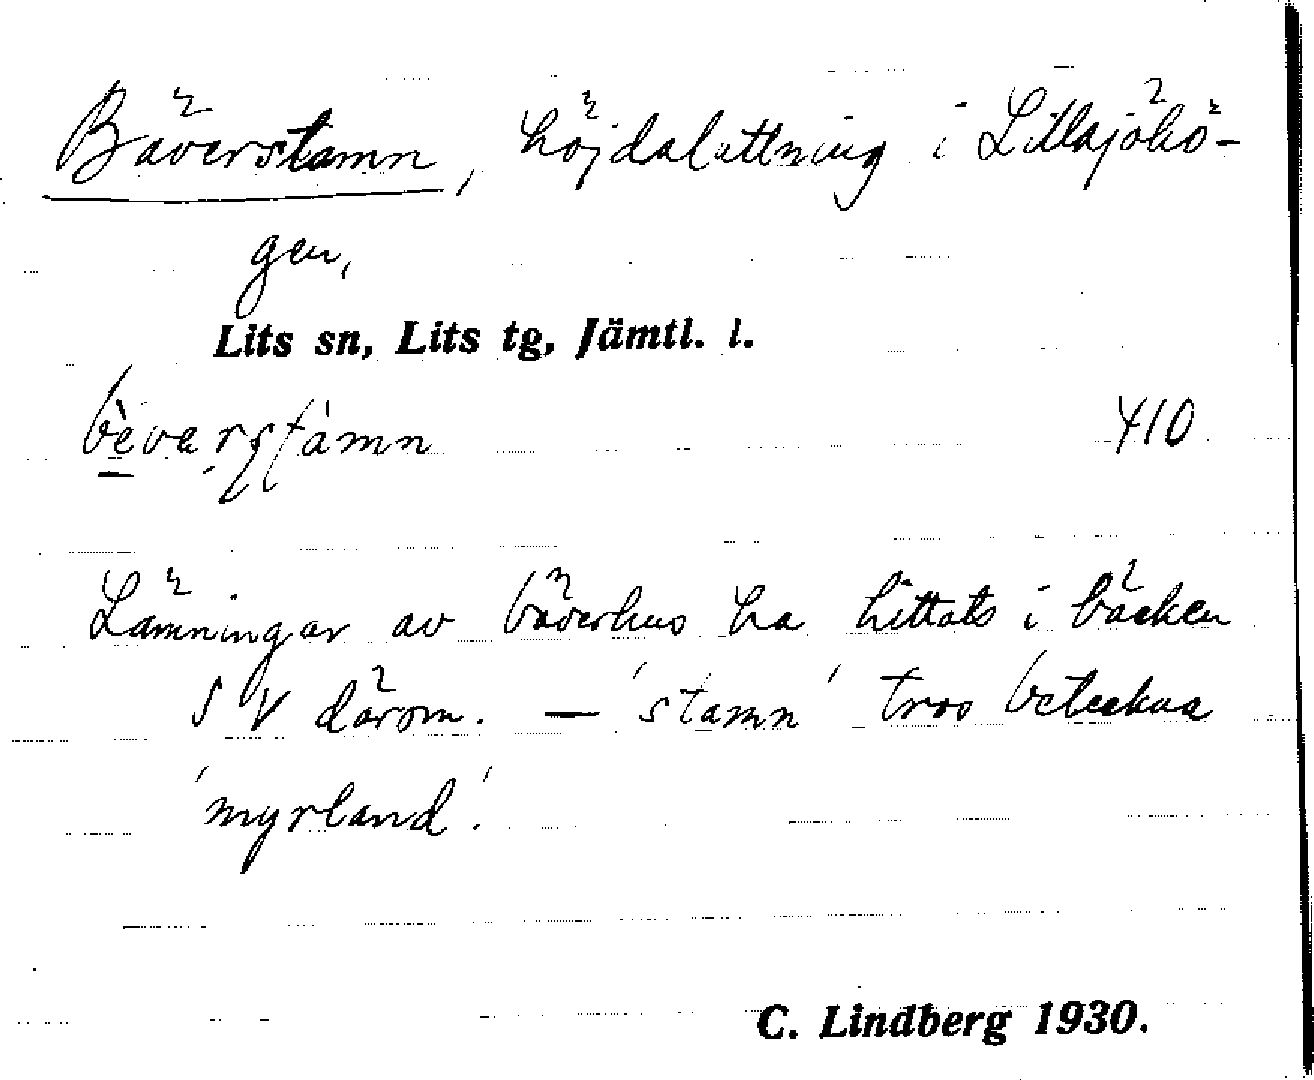 Bäverstamn, höjdsluttning i Lillsjöhö-
gen,
Lits sn, Lits tg, Jämtl. l.
bèvarstàmn 410
Lämningar av bäverhus ha hittats i bäcken
SV därom. — 'stamn' tros beteckna
'myrland'.
C. Lindberg 1930.